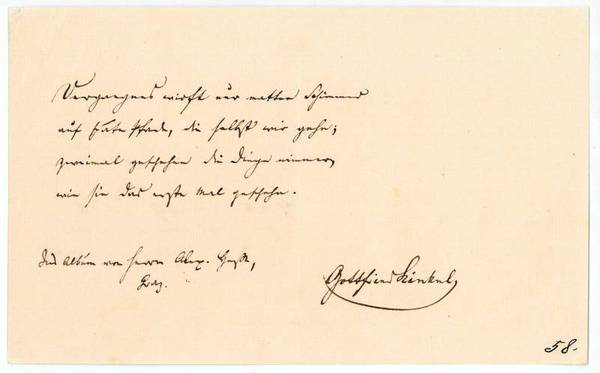 Vergangnes wirft nur matten Schimmer
auf Pfade, die selbst wir gehn;
zweimal geschehen die Dinge nimmer,
wie sie das erste Mal geschehn.
Ins Album von Herrn Alex.
Graz.
Gottfried Kinkel
58.